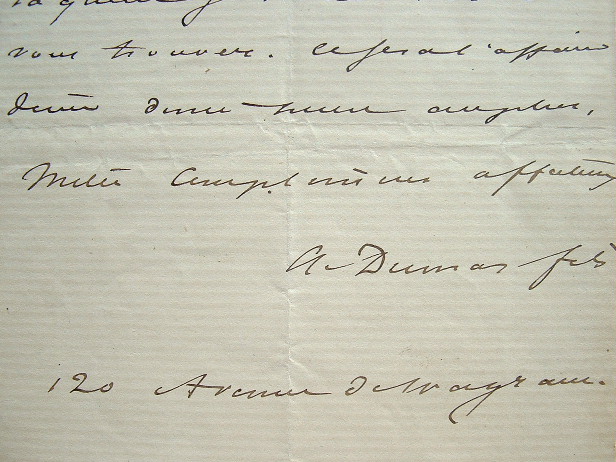 vous trouver. Ce sera l'affaire
d'une demi heure au plus.
Mille compliments affectueux
A. Dumas fils
120 Avenue de Wagram.